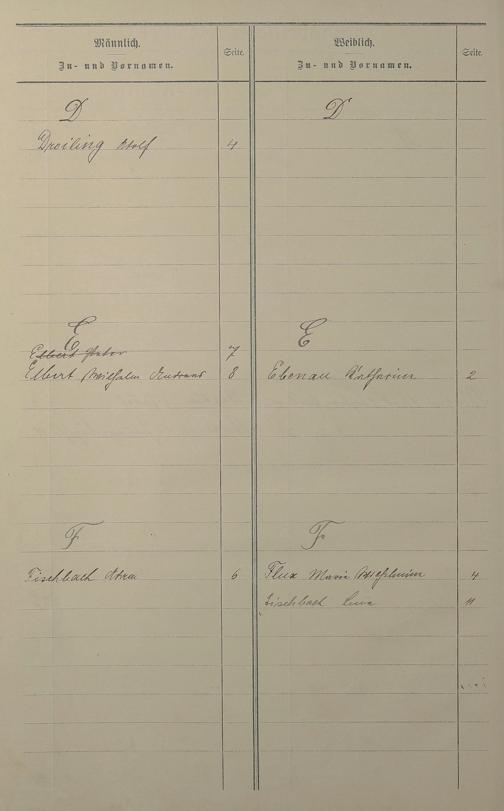 Männlich.
Zu- und Vornamen.
Seite.
D
Dreiling Adolf 4
E
Elbert 7
Elbert Wilhelm 8
F
Fischbach 6
Weiblich.
Zu- und Vornamen.
Seite.
D
E
Ebenau Katharina 2
F
Flux Maria Wilhelmine 4
Fischbach Lina 11